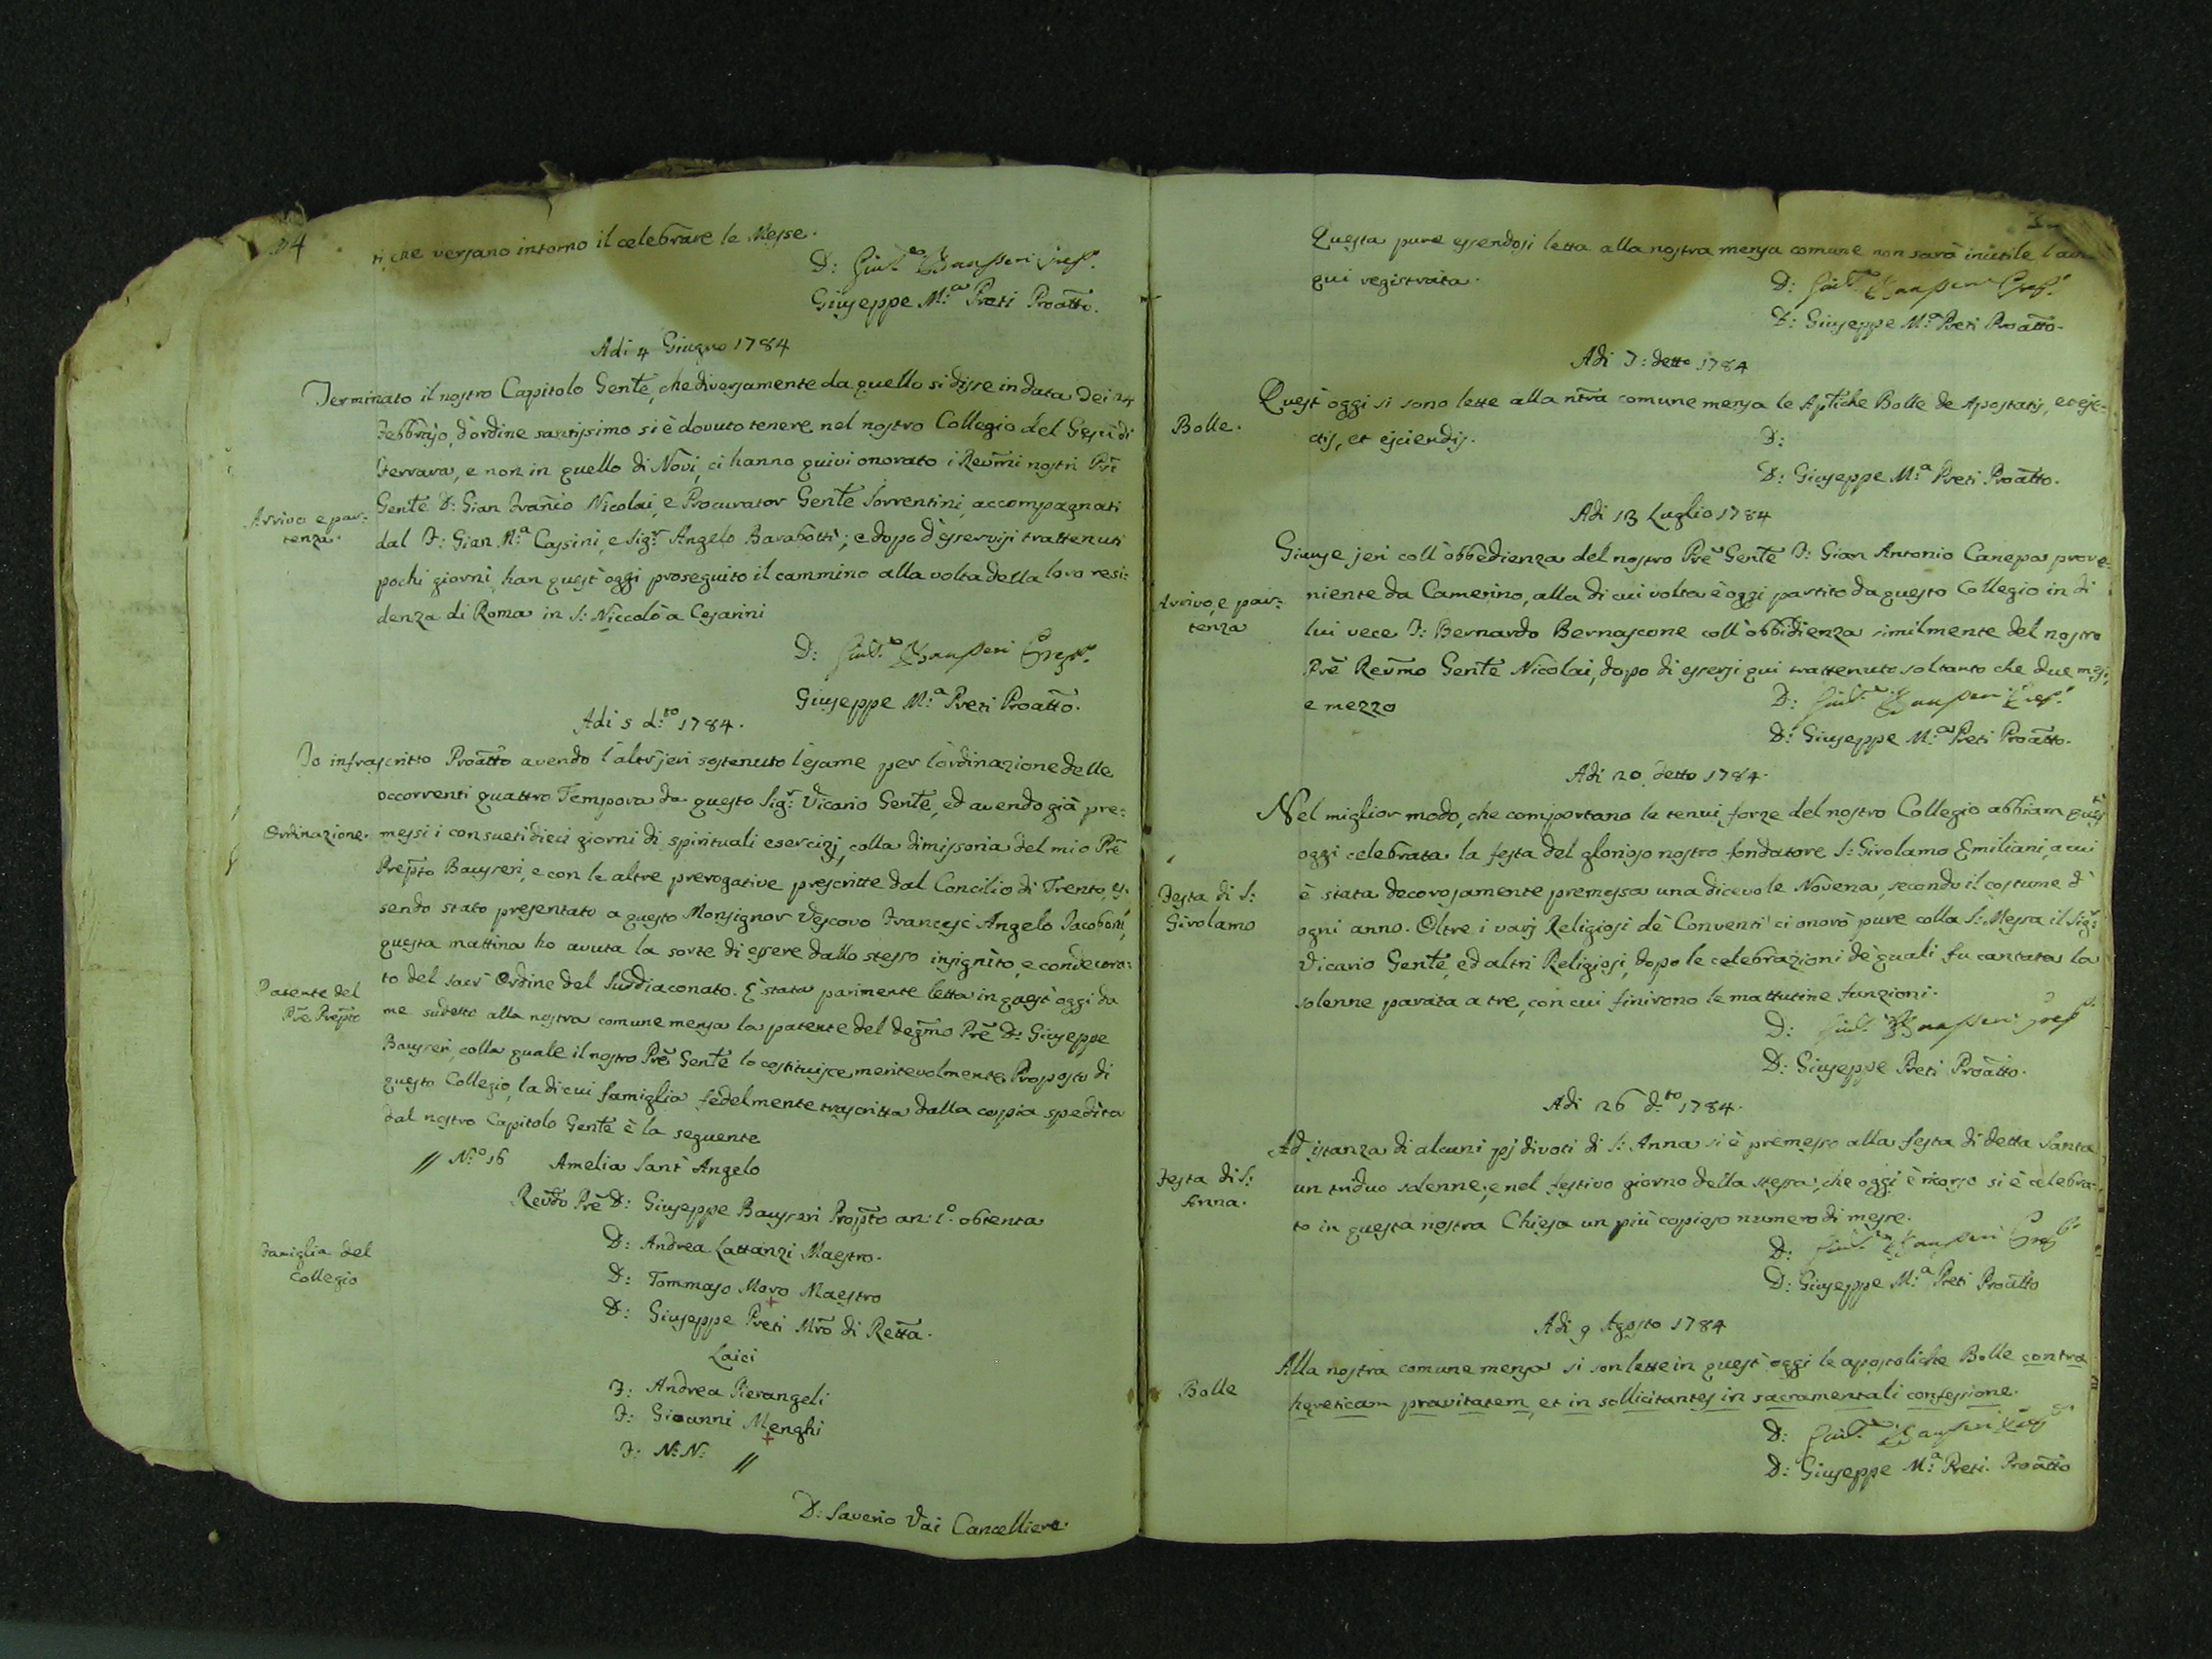 ti, che versano intorno il celebrare le Messe.
D: Gius.e Bauseri Prep.o
Giuseppe M.a Preti Proatto.
Adi 4 Giugno 1784
Terminato il nostro Capitolo Gente, che diversamente da quello si disse in data dei 24
Febbrajo, d'ordine santissimo si è dovuto tenere nel nostro Collegio del Gesù di
Ferrara, e non in quello di Novi, ci hanno quivi onorato i Reumi nostri Pre
Gente D: Gian Franco Nicolai, e Procurator Gente Sorrentini, accompagnati
Arrivo e par=
tenza.
dal F: Gian M.a Cassini, e Sig.r Angelo Barabotti; e dopo d'esservisi trattenuti
pochi giorni, han quest'oggi proseguito il cammino alla volta della loro resi:
denza di Roma in S: Niccolò a Cesarini
D: Gius.e Bauseri Prep.o
Giuseppe M.a Preti Proatto.
Adi 5 d.to 1784.
Io infrascritto Proatto avendo l'altr'jeri sostenuto l'esame per l'ordinazione delle
occorrenti quattro Tempora da questo Sig.r Vicario Gente, ed avendo già pre:
Ordinazione.
messi i consueti dieci giorni di spirituali esercizj, colla dimissoria del mio Pre
Prepto Bauseri, e con le altre prerogative prescritte dal Concilio di Trento, es:
sendo stato presentato a questo Monsignor Vescovo Francesc'Angelo Jacoboni,
questa mattina ho avuta la sorte di essere dallo stesso insignito, e condecora:
to del sacr'Ordine del Suddiaconato. È stata parimente letta in quest'oggi da
Patente del
Pre Prepto
me sudetto alla nostra comune mensa la patente del degmo Pre D: Giuseppe
Bauseri, colla quale il nostro Pre Gente lo costituisce meritevolmente Proposto di
questo Collegio, la di cui famiglia fedelmente trascritta dalla copia spedita
dal nostro Capitolo Gente è la seguente
// N.o 16 Amelia Sant'Angelo
Revdo Pre D: Giuseppe Bauseri Propto an: 1.o obtenta
Famiglia del
Collegio
D: Andrea Lattanzi Maestro.
D: Tommaso Moro Maestro
D: Giuseppe Preti Mro di Retta.
Laici
F: Andrea Pierangeli
F: Gioanni Menghi
F: N: N: //
D: Saverio Vai Cancelliere.
Questa pure essendosi letta alla nostra mensa comune non sarà inutile l'aver
qui registrata.
D: Gius.e Bauseri Prep.o
D: Giuseppe M.a Preti Proatto.
Adi 7: detto 1784
Quest'oggi si sono lette alla ntra comune mensa le Aptiche Bolle de Apostatis, et eje=
Bolle.
ctis, et ejciendis.
D:
D: Giuseppe M.a Preti Proatto.
Adi 13 Luglio 1784
Giunse jeri coll'obbedienza del nostro Pre Gente F: Gian Antonio Canepa prove=
Arrivo, e par=
tenza
niente da Camerino, alla di cui volta è oggi partito da questo Collegio in di
lui vece F: Bernardo Bernascone coll'obbidienza similmente del nostro
Pre Reumo Gente Nicolai, dopo di essersi qui trattenuto soltanto che due mesi,
e mezzo
D: Gius.e Bauseri Prep.o
D: Giuseppe M.a Preti Proatto.
Adi 20 detto 1784.
Nel miglior modo, che comportano le tenui forze del nostro Collegio abbiam quest
oggi celebrata la festa del glorioso nostro fondatore S: Girolamo Emiliani, a cui
Festa di S:
Girolamo
è stata decorosamente premessa una dicevole Novena, secondo il costume d'
ogni anno. Oltre i varj Religiosi de' Conventi ci onorò pure colla S: Messa il Sig.r
Vicario Gente, ed altri Religiosi, dopo le celebrazioni de' quali fu cantata la
solenne parata a tre, con cui finirono le mattutine funzioni.
D: Gius.e Bauseri Prep.o
D: Giuseppe Preti Proatto.
Adi 26 d.to 1784.
Ad istanza di alcuni pj divoti di S: Anna si è premesso alla festa di detta Santa
Festa di S:
Anna.
un triduo solenne; e nel festivo giorno della stessa, che oggi è ricorso si è celebra:
to in questa nostra Chiesa un più copioso numero di messe.
D: Gius.e Bauseri Prep.o
D: Giuseppe M.a Preti Proatto
Adi 9 Agosto 1784
Alla nostra comune mensa si son lette in quest'oggi le apostoliche Bolle contra
Bolle
hereticam pravitatem, et in sollicitantes in sacramentali confessione.
D: Gius.e Bauseri Prep.o
D: Giuseppe M.a Preti. Proatto